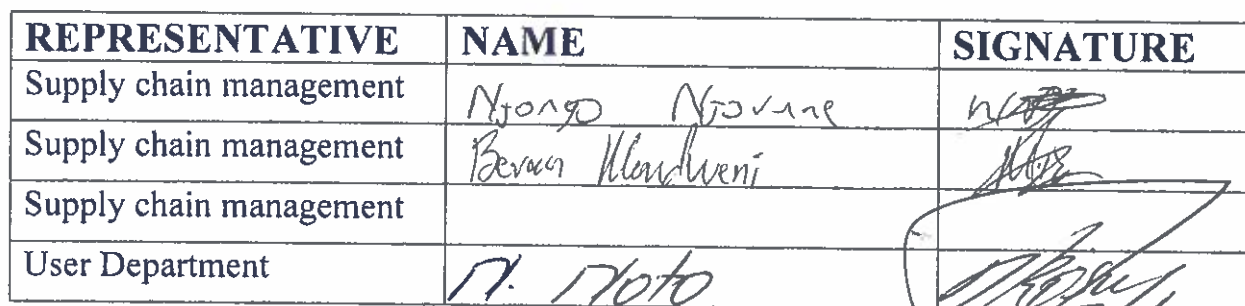 REPRESENTATIVE NAME SIGNATURE
Supply chain management Njongo Njovane
Supply chain management Bevan
Supply chain management
User Department M.